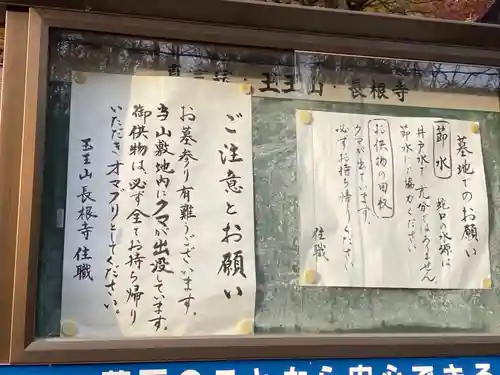 玉王山・長根寺
墓地でのお願い
一節水
蛇口の水源は
井戸水で充分ではありません
節水にご協力ください。
お供物の回収
クマが出ています。
必ずお持ち帰りください
住職
ご注意とお願い
お墓参り有難うございます。
当山敷地内にクマが出没しています。
御供物は、必ず全てお持ち帰り
いただきオマブリとしてください。
玉王山長根寺住職